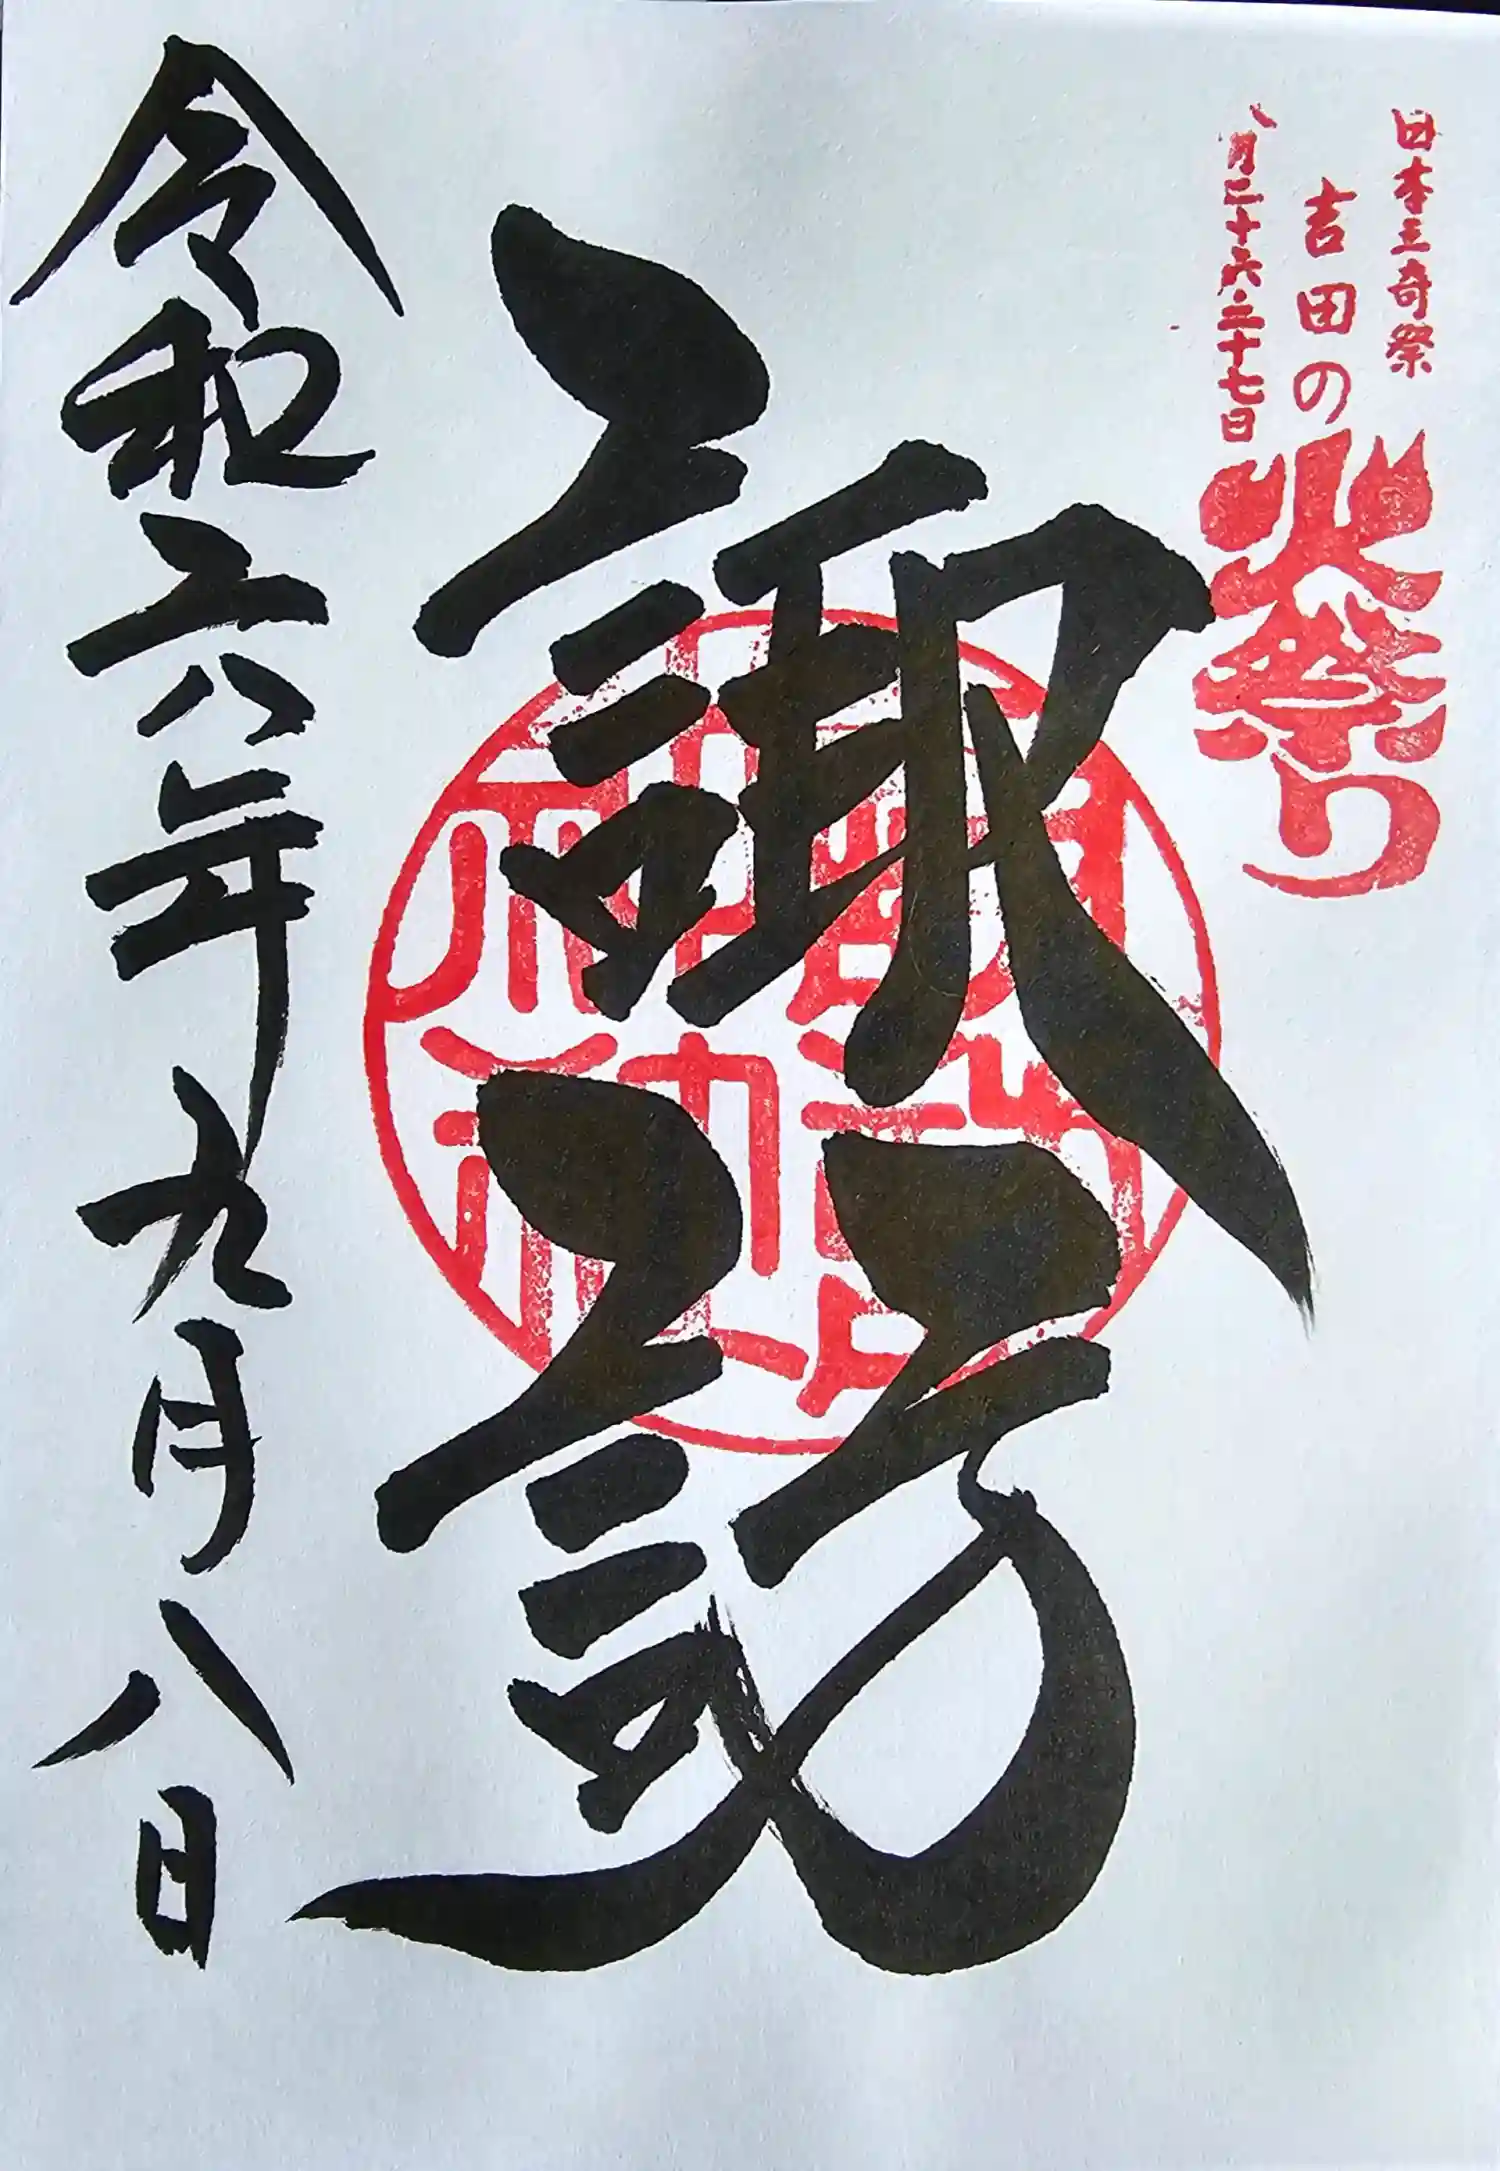 日本三奇祭
吉田の火祭り
八月二十六・二十七日
諏訪
諏訪神社
令和六年九月八日